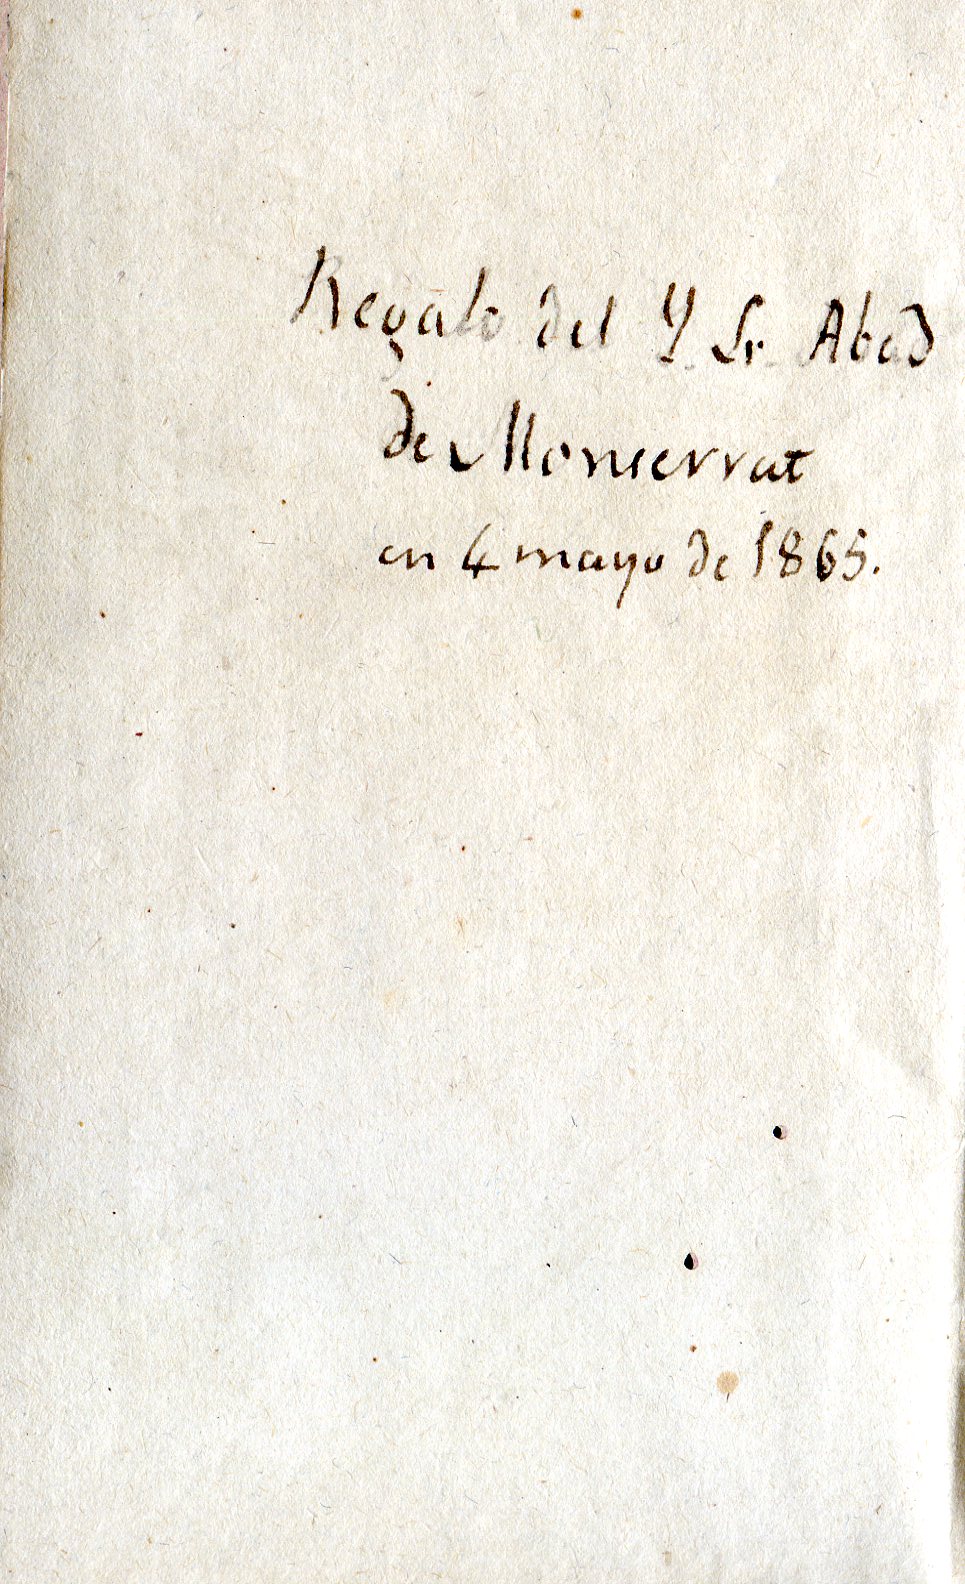 Regalo del Y Sr Abad
de Monserrat
en 4 mayo de 1865.